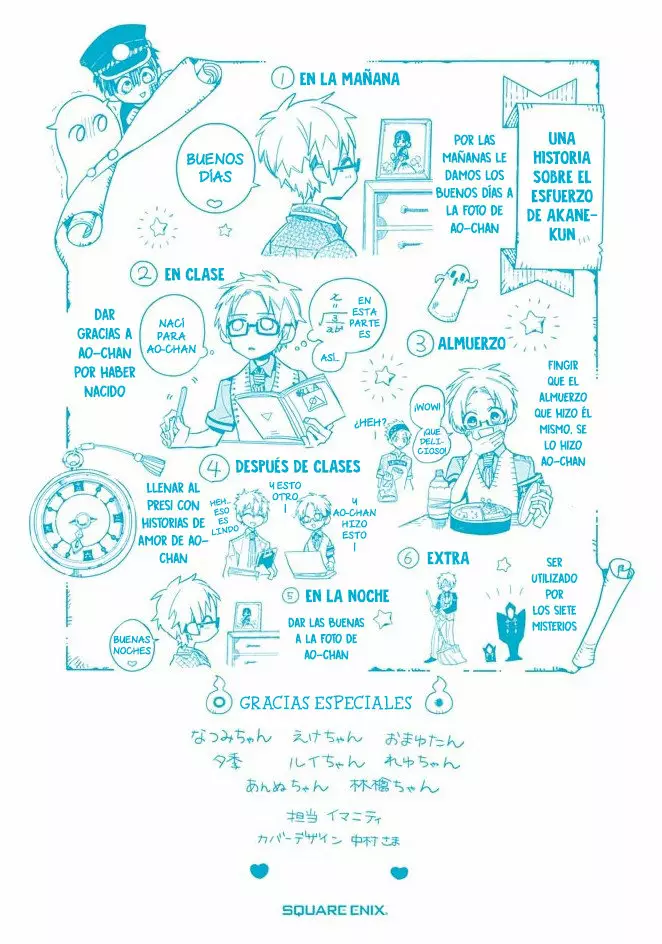 ① EN LA MAÑANA
UNA
HISTORIA
SOBRE EL
ESFUERZO
DE AKANE-
KUN
BUENOS
DÍAS
POR LAS
MAÑANAS LE
DAMOS LOS
BUENOS DÍAS A
LA FOTO DE
AO-CHAN
② EN CLASE
DAR
GRACIAS A
AO-CHAN
POR HABER
NACIDO
NACÍ
PARA
AO-CHAN
EN
ESTA
PARTE
ES
ASÍ..
③ ALMUERZO
FINGIR
QUE EL
ALMUERZO
QUE HIZO ÉL
MISMO, SE
LO HIZO
AO-CHAN
¿HEH?
¡WOW!
¡QUE
DELI-
CIOSO!
④ DESPUÉS DE CLASES
LLENAR AL
PRESI CON
HISTORIAS DE
AMOR DE AO-
CHAN
HEH..
ESO
ES
LINDO
Y ESTO
OTRO
Y
AO-CHAN
HIZO
ESTO
⑤ EN LA NOCHE
BUENAS
NOCHES
DAR LAS BUENAS
A LA FOTO DE
AO-CHAN
⑥ EXTRA
SER
UTILIZADO
POR
LOS SIETE
MISTERIOS
GRACIAS ESPECIALES
なつみちゃん えけちゃん おまゅたん
夕季 ルイちゃん れゅちゃん
あんぬちゃん 林檎ちゃん
担当 イマニティ
カバーデザイン 中村さま
SQUARE ENIX.